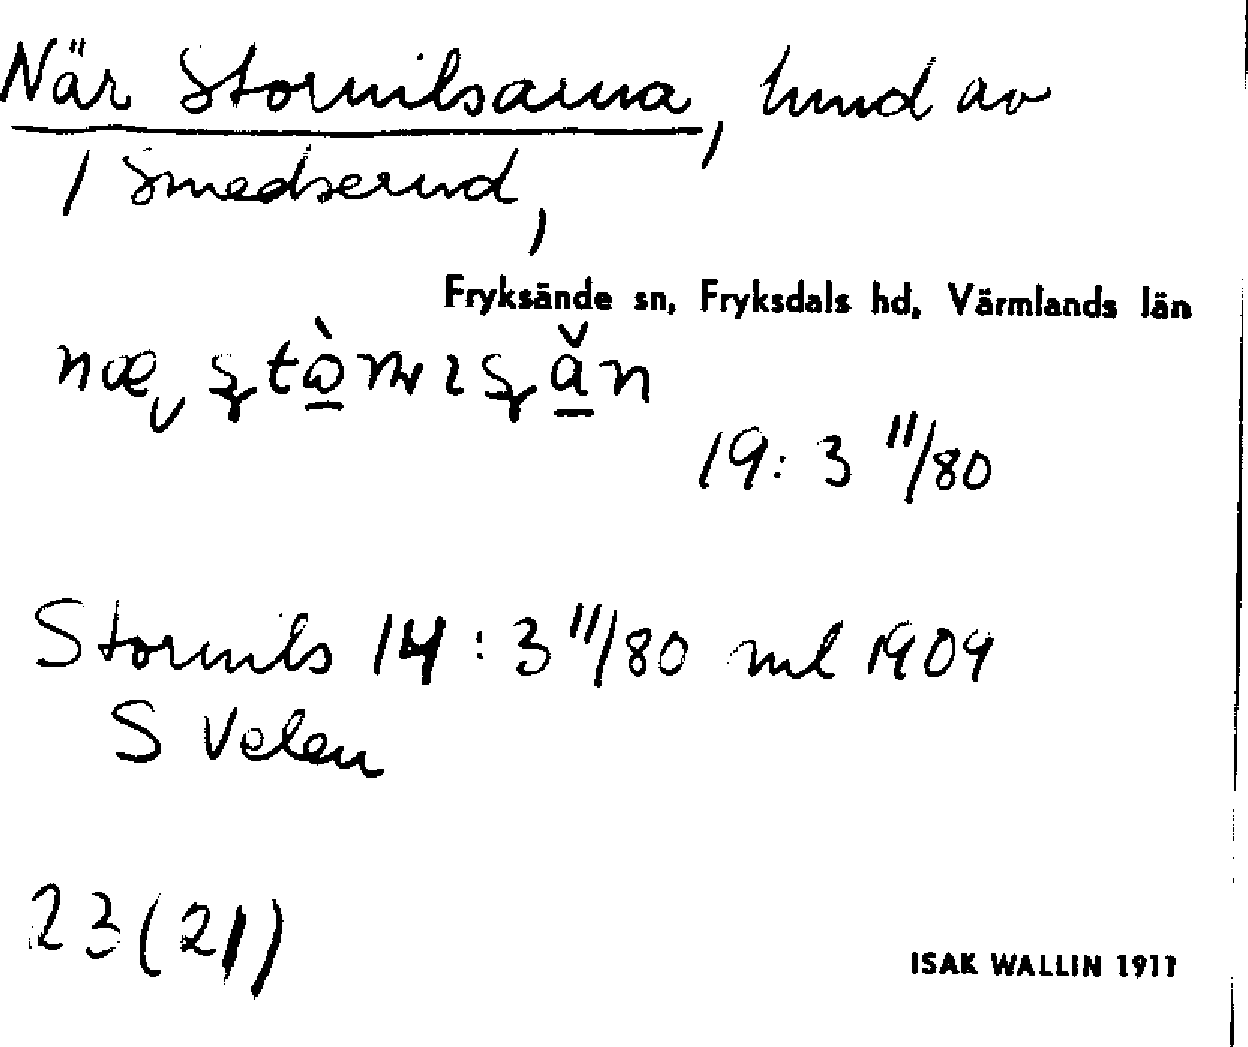 När Stornilsarna, hmd av
1 Smedserud,
Fryksände sn, Fryksdals hd, Värmlands län
19: 3 11/80
Stornils 14 : 3 11/80 ml 1909
S Velen
23 (21)
ISAK WALLIN 1911